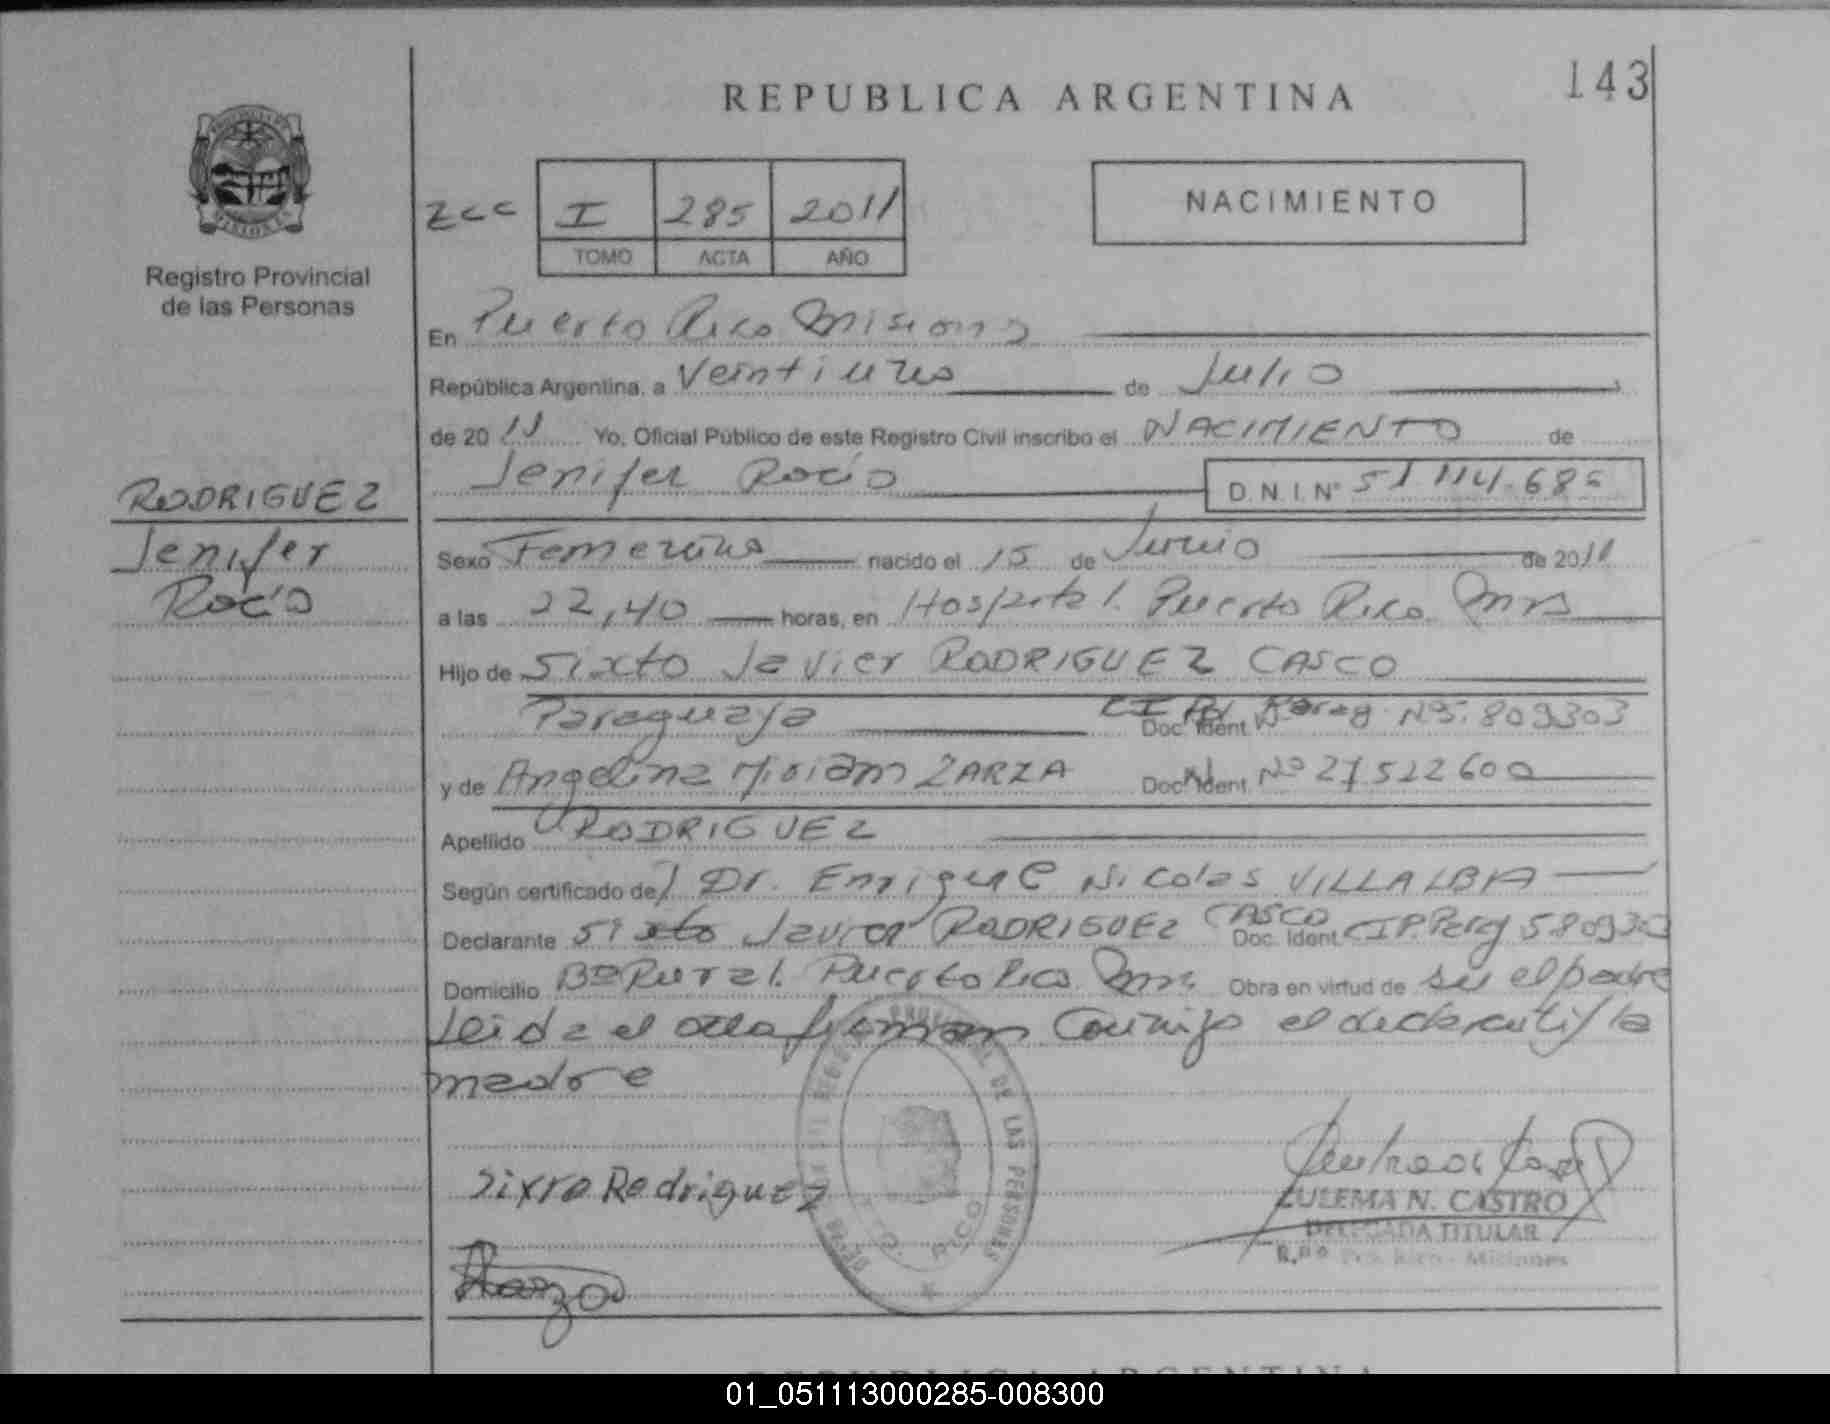 REPUBLICA ARGENTINA
143
Registro Provincial
de las Personas
zcc I 285 2011
TOMO ACTA AÑO
NACIMIENTO
En Puerto Rico Misiones
República Argentina, a Veintiuno de Julio
de 2011 Yo, Oficial Público de este Registro Civil inscribo el NACIMIENTO de
Jenifer Rocío D.N.I.Nº 51.114.685
RODRIGUEZ
Jenifer
Rocío
Sexo Femenino nacido el 15 de Junio de 2011
a las 22,40 horas, en Hospital. Puerto Rico Mns
Hijo de Sixto Javier RODRIGUEZ CASCO
Paraguaya Doc. Ident. CI Parag. Nº 5.809303
y de Angelina Miriam ZARZA Doc. Ident. Nº 27522600
Apellido RODRIGUEZ
Según certificado del Dr. Enrique Nicolas VILLALBA
Declarante Sixto Javier RODRIGUEZ CASCO Doc. Ident. CIP. Parg 5809303
Domicilio Bº Rural. Puerto Rico Mns Obra en virtud de ser el padre
Leida el acta firman Conmigo el declarante y la
madre
Sixto Rodriguez
Zarza
REGISTRO PROVINCIAL DE LAS PERSONAS
PTO. RICO
ZULEMA N. CASTRO
DELEGADA TITULAR
Pto. Rico - Misiones
REPUBLICA ARGENTINA
01_051113000285-008300